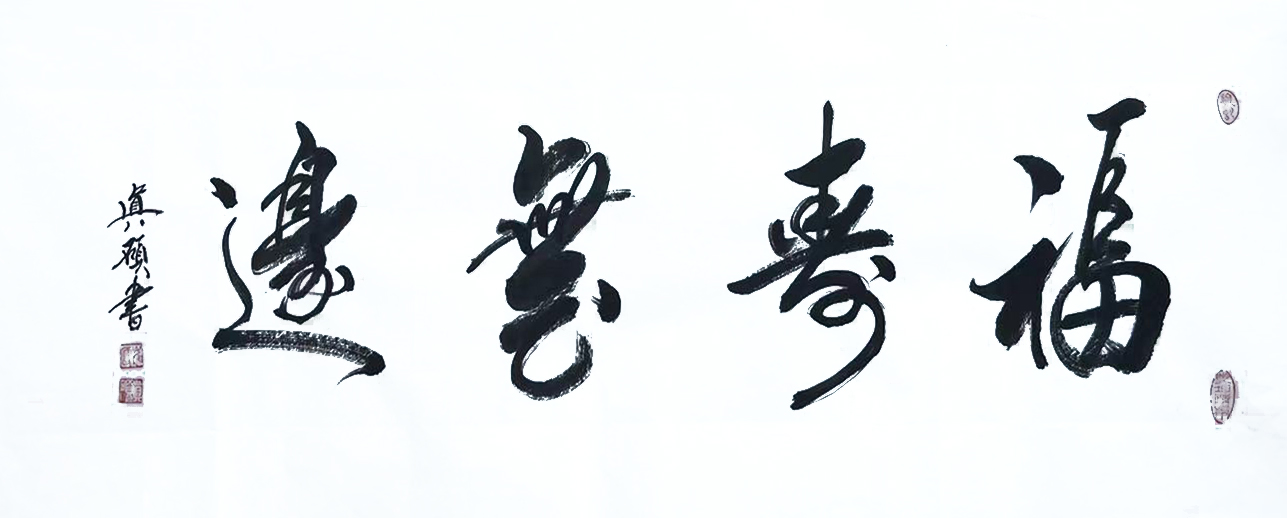 福壽無邊
真碩書